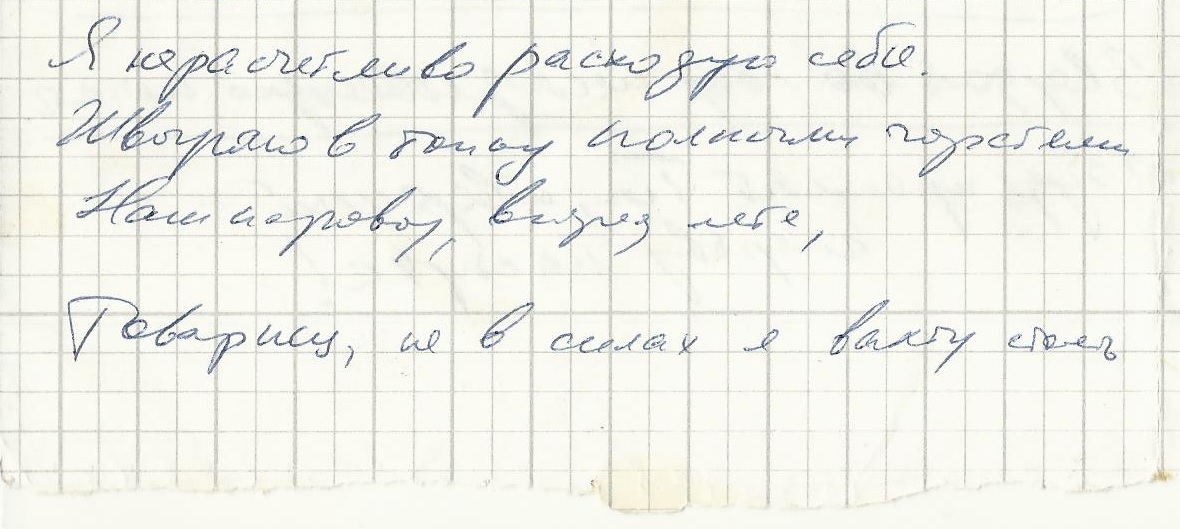 Я нерасчетливо расходую себя.
Швыряю в топку полными горстями
Наш паровоз, вперед лети,
Товарищ, не в силах я вахту стоять